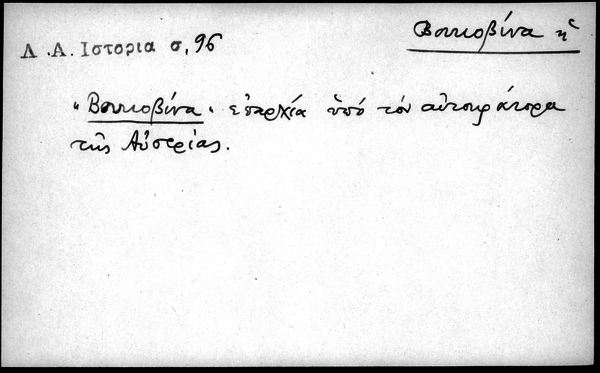 Βουκοβίνα ἡ
Λ.Α. Ιστορια σ, 96
"Βουκοβίνα" ἐπαρχία ὑπό τόν αὐτοκράτορα
τῆς Αὐστρίας.